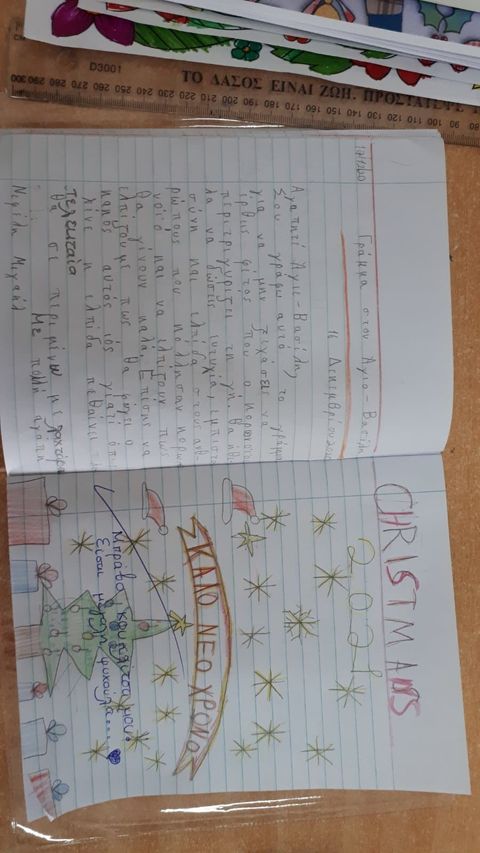 ΤΟ ΔΑΣΟΣ ΕΙΝΑΙ ΖΩΗ. ΠΡΟΣΤΑΤΕΨΕ
D3001
Γράμμα στον Άγιο-Βασίλη
16 Δεκεμβρίου
Αγαπητέ Άγιε-Βασίλη,
Σου γράφω αυτό το γράμμα
για να μην ξεχάσεις να
έρθεις φέτος που ο κορωνοϊός
περιτριγυρίζει τη γη. Θα ήθε
λα να δώσεις ευτυχία, εμπιστο
σύνη και ελπίδα στους ανθ
ρώπους που κόλλησαν κορω
νοϊό και να ελπίζουν πως
θα γίνουν καλά. Επίσης να
ελπίζουμε πως θα φύγει ο
κακός αυτός ιός γιατί όπως
λένε η ελπίδα πεθαίνει
τελευταία
θα σε περιμένω με λαχτάρα
Με πολλή αγάπη
Νεφέλη Μιχαήλ
CHRISTMAS
2021
ΚΑΛΟ ΝΕΟ ΧΡΟΝΟ
Μπράβο, κουκλίτσα μου!
Είσαι μεγάλη ψυχούλα....